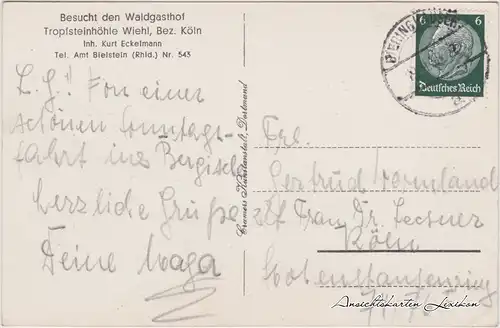 Besucht den Waldgasthof
Tropfsteinhöhle Wiehl, Bez. Köln
Inh. Kurt Eckelmann
Tel. Amt Bielstein (Rhld.) Nr. 543
6 6
Deutsches Reich
L. G.! Von einer
schönen Sonntags-
fahrt ins Bergische
herzliche Grüße
Deine
Cramers Kunstanstalt, Dortmund
Frl.
Gertrud
Frau Dr.
Köln
71-75
Ansichtskarten Lexikon